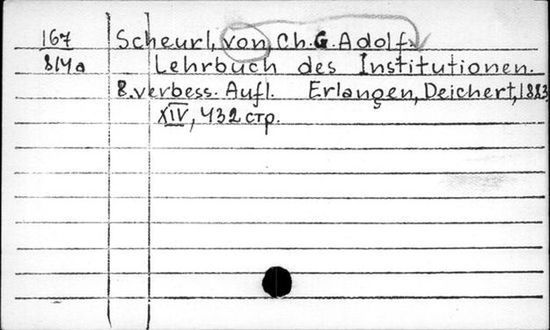 167 Scheurl, von, Ch. G. Adolf.
814a Lehrbuch des Institutionen.
8. verbess. Aufl. Erlangen, Deichert, 1883
XIV, 432 стр.